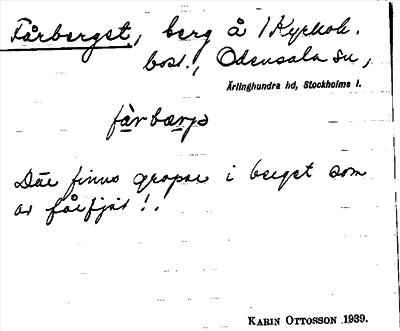 Fårberget, berg å 1 Kyrkoh.
bost., Odensala sn,
Ärlinghundra hd, Stockholms l.
fàrbærjə
Där finns gropar i berget som
av fårfjät!.
KARIN OTTOSSON 1939.